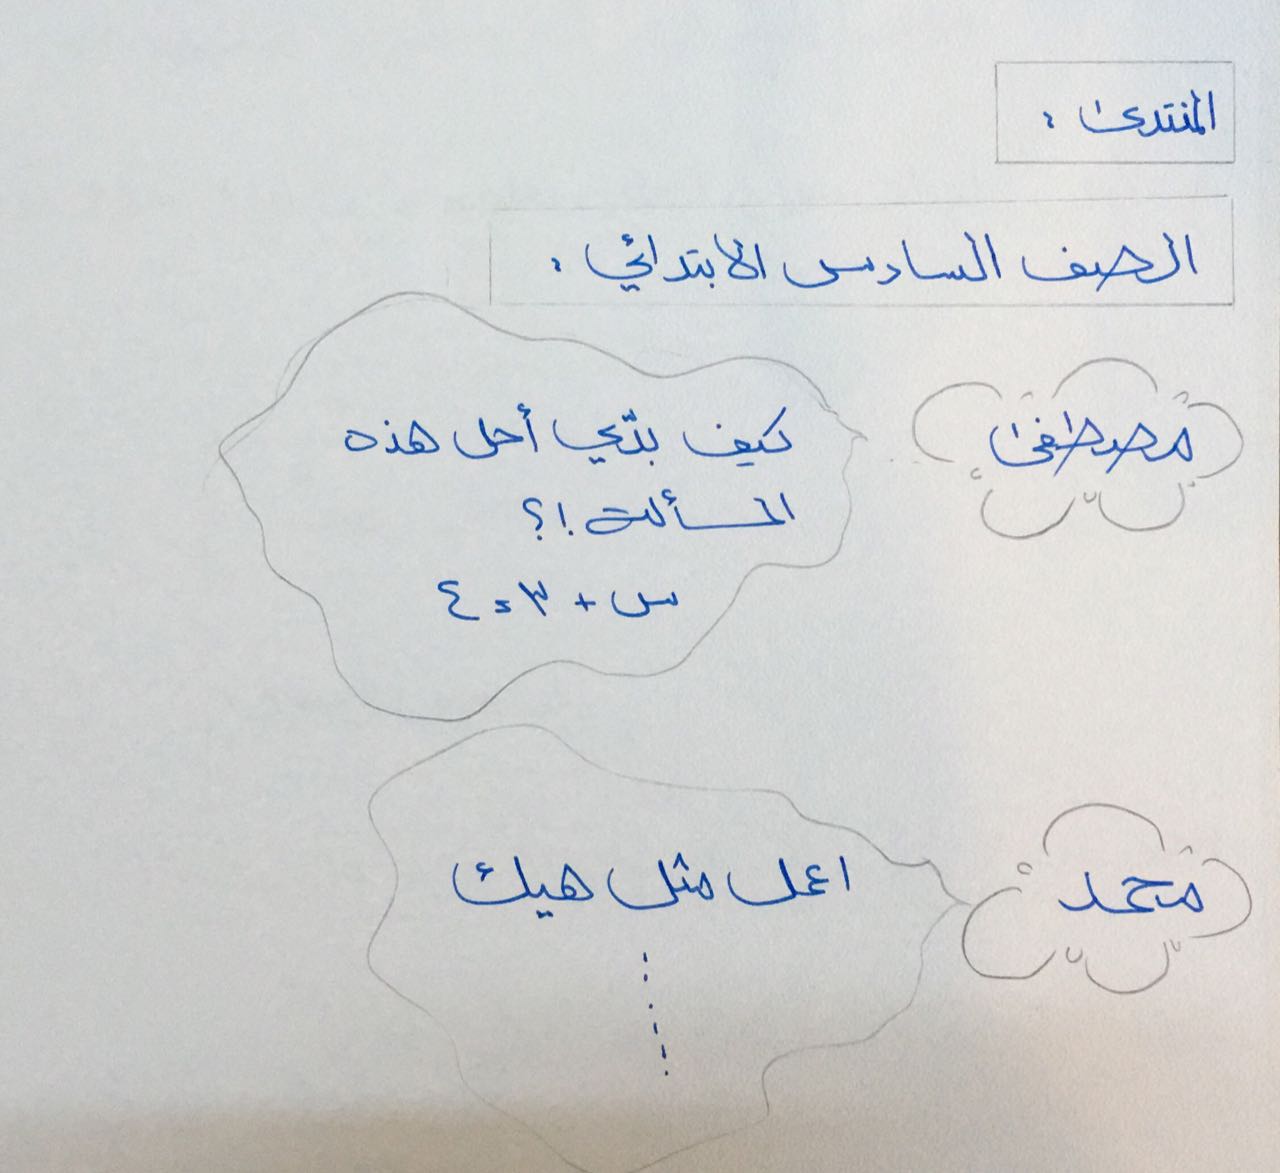 المنتدى :
الصف السادس الابتدائي :
مصطفى
كيف بدّي أحل هذه
المسألة !؟
س + ٣ = ٤
محمد
اعمل مثل هيك